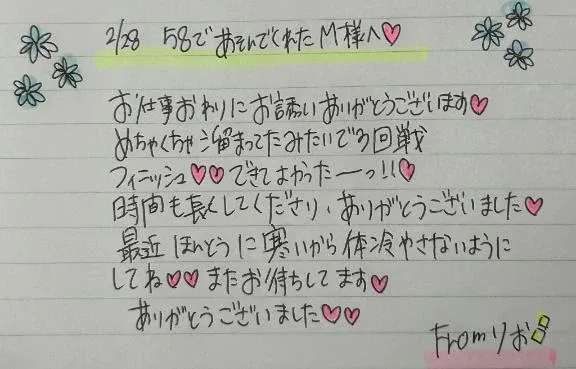 2/28 58であそんでくれたM様へ♡
お仕事おわりにお誘いありがとうございます♡
めちゃくちゃ溜まってたみたいで3回戦
フィニッシュ♡♡できてよかったーっ!!♡
時間も長くしてくださり、ありがとうございました♡
最近ほんとうに寒いから体冷やさないように
してね♡♡またお待ちしてます♡
ありがとうございました♡♡
Fromりお